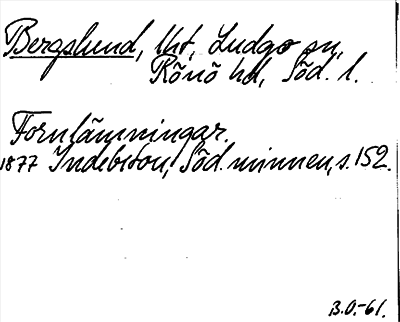 Bergslund, lht, Ludgo sn,
Rönö hd, Söd. l.
Fornlämningar.
1877 Indebetou, Söd. minnen, s. 152.
B.O.-61.